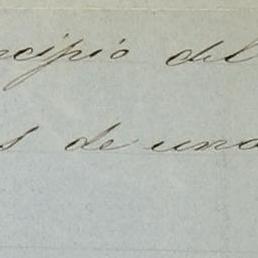 ncipio del
s de una